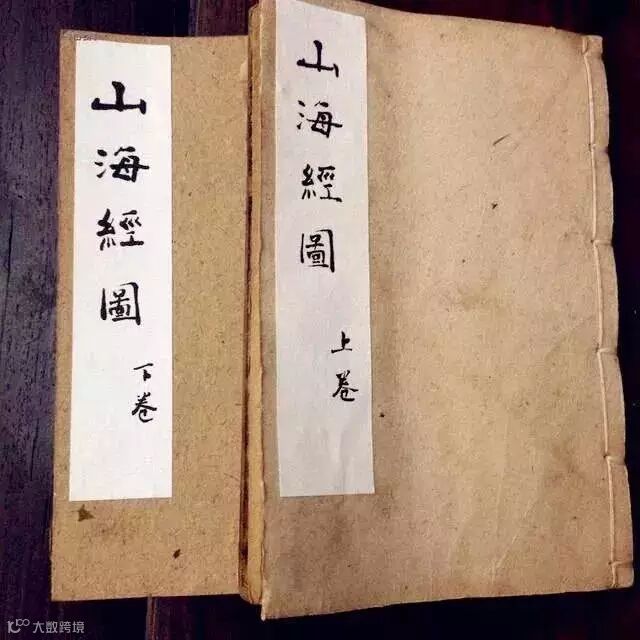 山海經圖
上卷
山海經圖
下卷
大数跨境